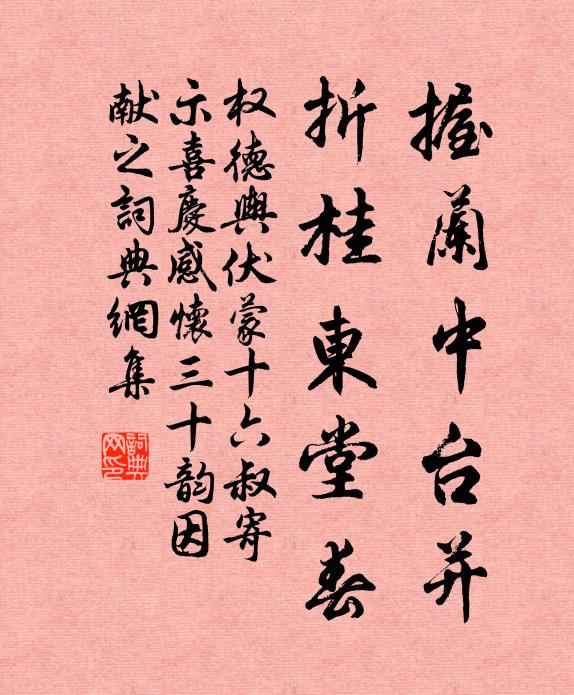 握蘭中台并
折桂東堂春
权德輿伏蒙十六叔寄
示喜慶感懷三十韵因
献之詞典網集
詞典网印